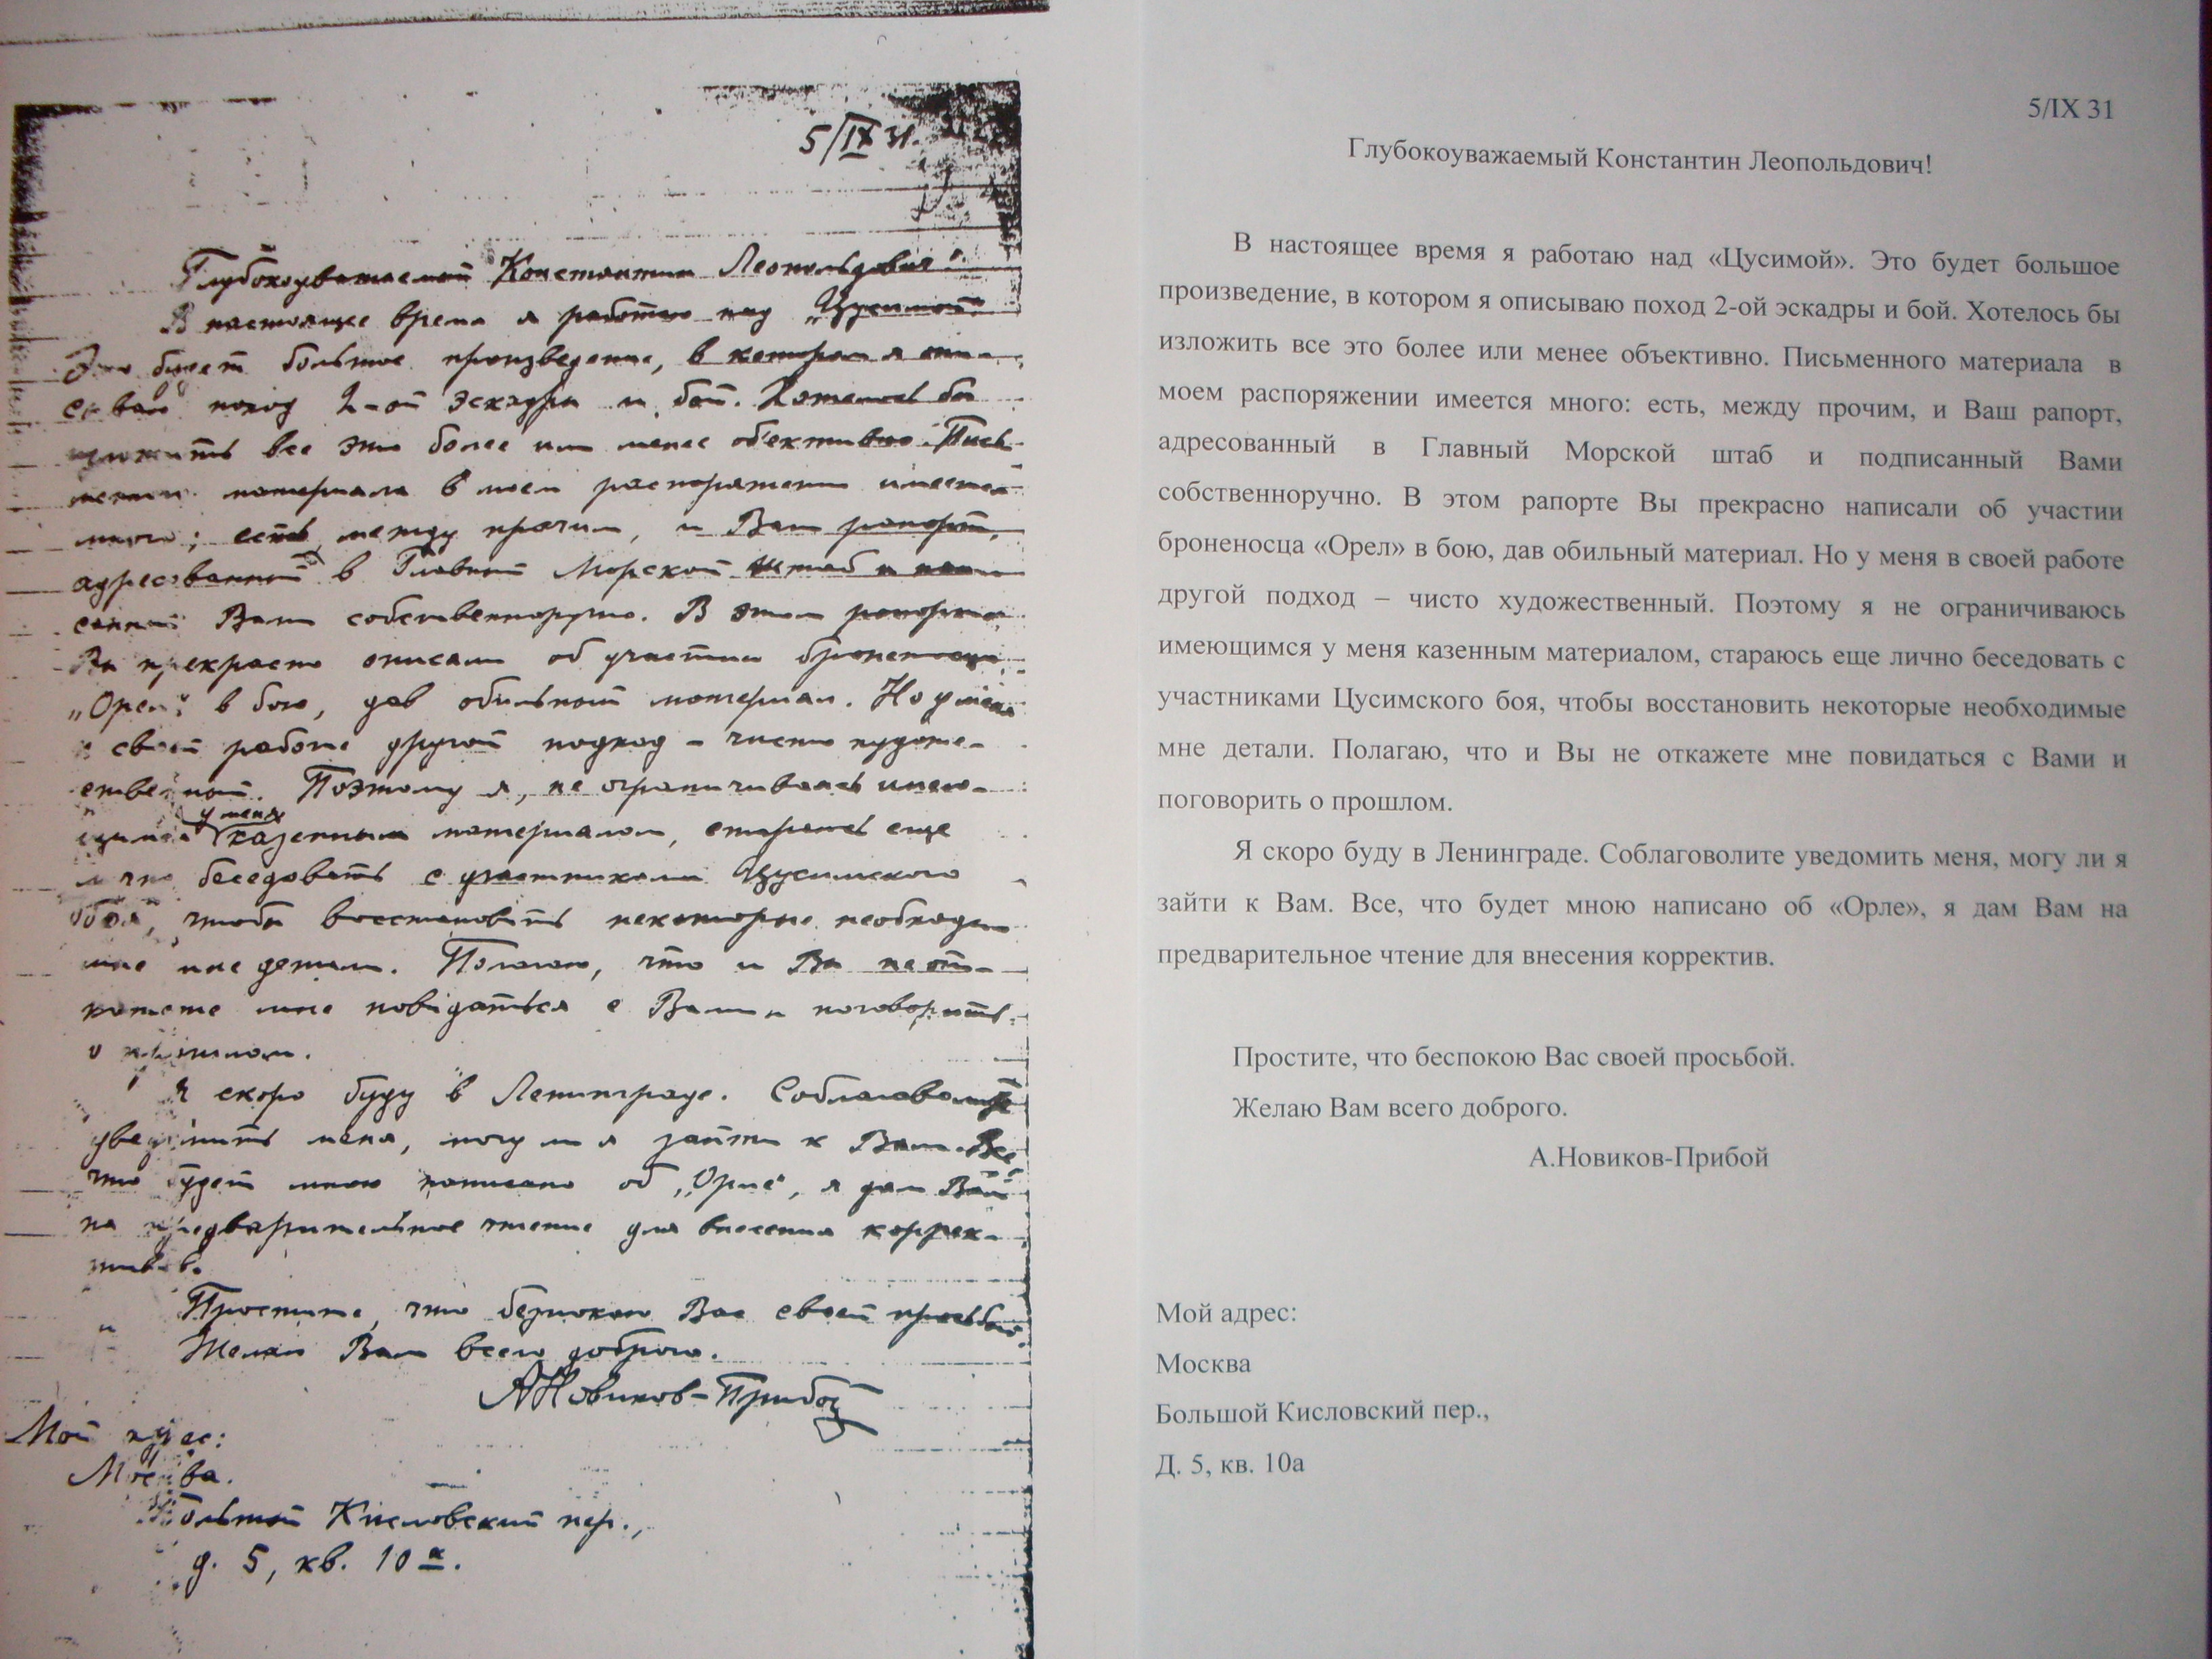 5/IX 31.
Глубокоуважаемый Константин Леопольдович!
В настоящее время я работаю над „Цусимой“.
Это будет большое произведение, в котором я опи-
сываю поход 2-ой эскадры и бой. Хотелось бы
изложить все это более или менее объективно. Пись-
менного материала в моем распоряжении имеется
много; есть, между прочим, и Ваш рапорт,
адресованный в Главный Морской штаб и напи-
санный Вами собственноручно. В этом рапорте
Вы прекрасно описали об участии броненосца
„Орел“ в бою, дав обильный материал. Но у меня
в своей работе другой подход – чисто художе-
ственный. Поэтому я, не ограничиваясь имею-
щимся у меня казенным материалом, стараюсь еще
лично беседовать с участниками Цусимского
боя, чтобы восстановить некоторые необходи-
мые мне детали. Полагаю, что и Вы не от-
кажете мне повидаться с Вами и поговорить
о прошлом.
Я скоро буду в Ленинграде. Соблаговолите
уведомить меня, могу ли я зайти к Вам. Все,
что будет мною написано об „Орле“, я дам Вам
на предварительное чтение для внесения коррек-
тивов.
Простите, что беспокою Вас своей просьбой.
Желаю Вам всего доброго.
А Новиков-Прибой
Мой адрес:
Москва.
Большой Кисловский пер.,
д. 5, кв. 10а.
5/IX 31
Глубокоуважаемый Константин Леопольдович!
В настоящее время я работаю над «Цусимой». Это будет большое
произведение, в котором я описываю поход 2-ой эскадры и бой. Хотелось бы
изложить все это более или менее объективно. Письменного материала в
моем распоряжении имеется много: есть, между прочим, и Ваш рапорт,
адресованный в Главный Морской штаб и подписанный Вами
собственноручно. В этом рапорте Вы прекрасно написали об участии
броненосца «Орел» в бою, дав обильный материал. Но у меня в своей работе
другой подход – чисто художественный. Поэтому я не ограничиваюсь
имеющимся у меня казенным материалом, стараюсь еще лично беседовать с
участниками Цусимского боя, чтобы восстановить некоторые необходимые
мне детали. Полагаю, что и Вы не откажете мне повидаться с Вами и
поговорить о прошлом.
Я скоро буду в Ленинграде. Соблаговолите уведомить меня, могу ли я
зайти к Вам. Все, что будет мною написано об «Орле», я дам Вам на
предварительное чтение для внесения корректив.
Простите, что беспокою Вас своей просьбой.
Желаю Вам всего доброго.
А.Новиков-Прибой
Мой адрес:
Москва
Большой Кисловский пер.,
Д. 5, кв. 10а